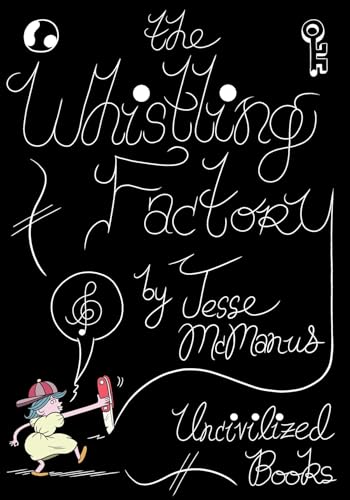 the
Whistling
Factory
by Jesse
McManus
Uncivilized
Books